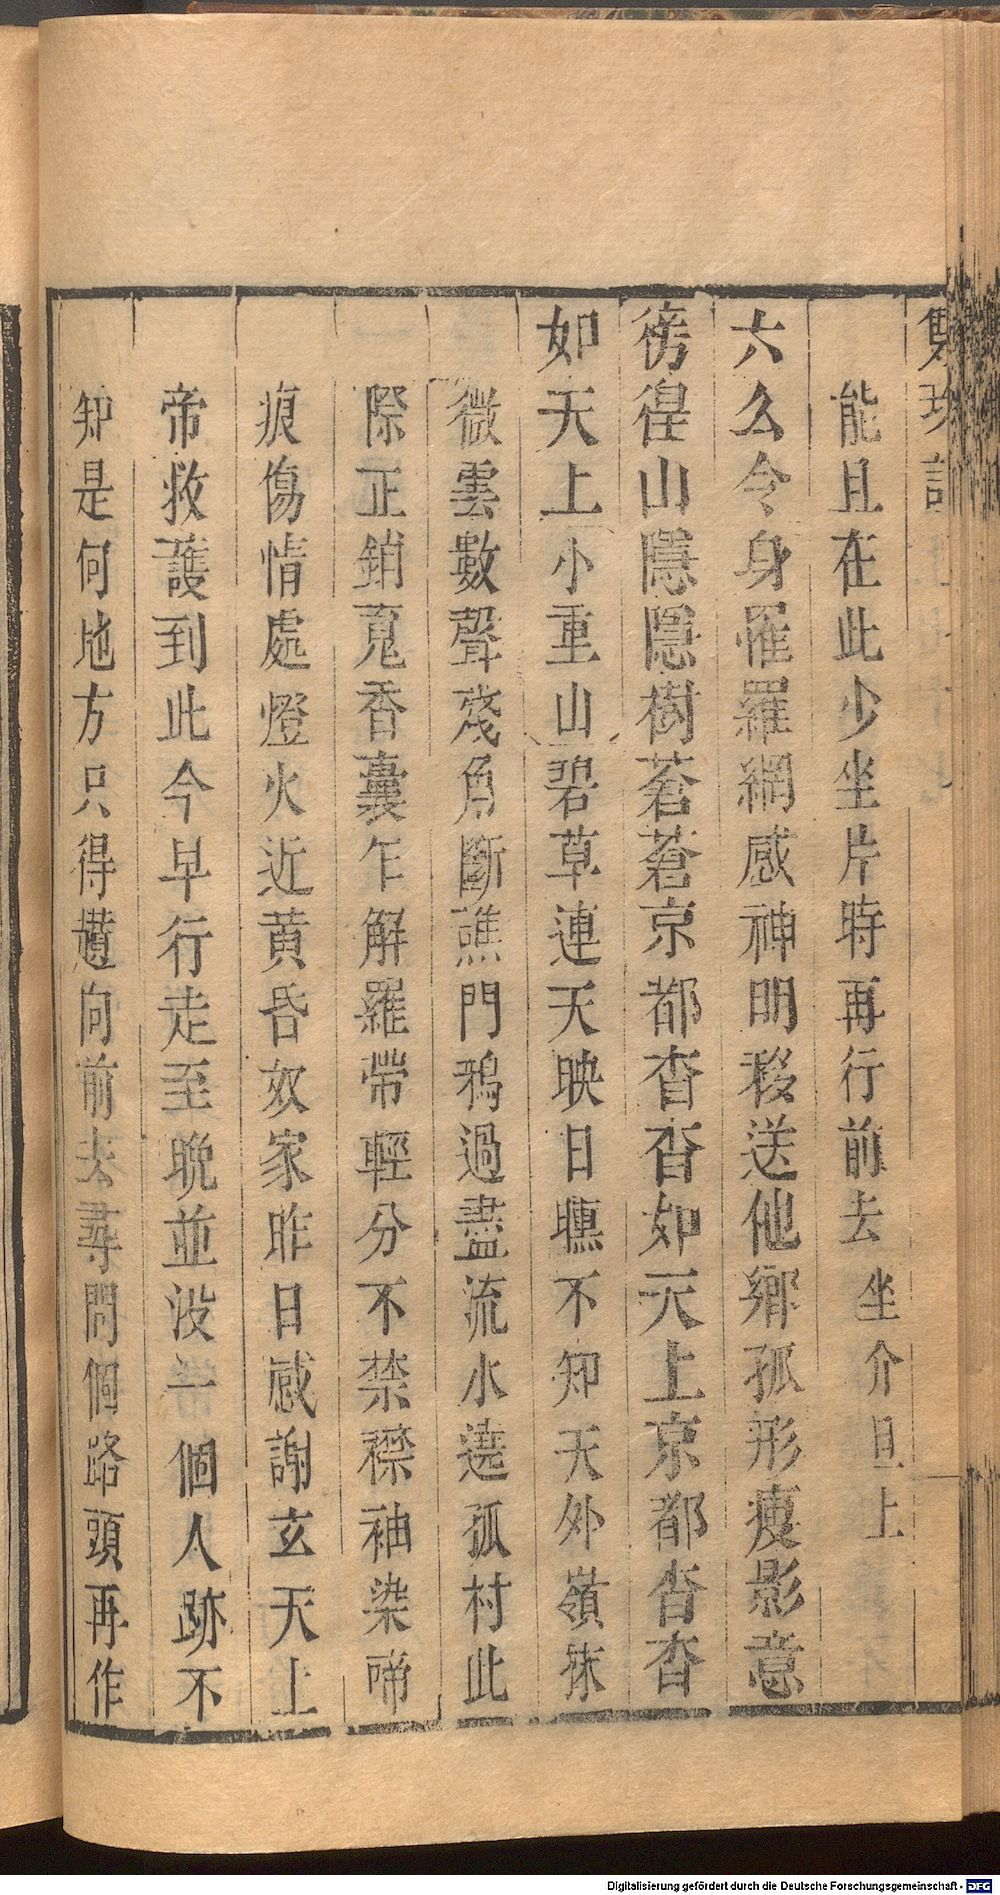 雙珍記
能且在此少坐片時再行前去 坐介旦上
六么令身罹羅網感神明移送他鄉孤形瘦影意
徬徨山隱隱樹蒼蒼京都杳杳如天上京都杳杳
如天上小重山碧草連天映日曛不知天外嶺
微雲數聲殘角斷譙門鴉過盡流水遶孤村此
際正銷䰟香囊乍解羅帶輕分不禁襟袖染啼
痕傷情處燈火近黃昏奴家昨日感謝玄天上
帝救護到此今早行走至晚並没一個人跡不
知是何地方只得趲向前去尋問個路頭再作
Digitalisierung gefördert durch die Deutsche Forschungsgemeinschaft - DFG